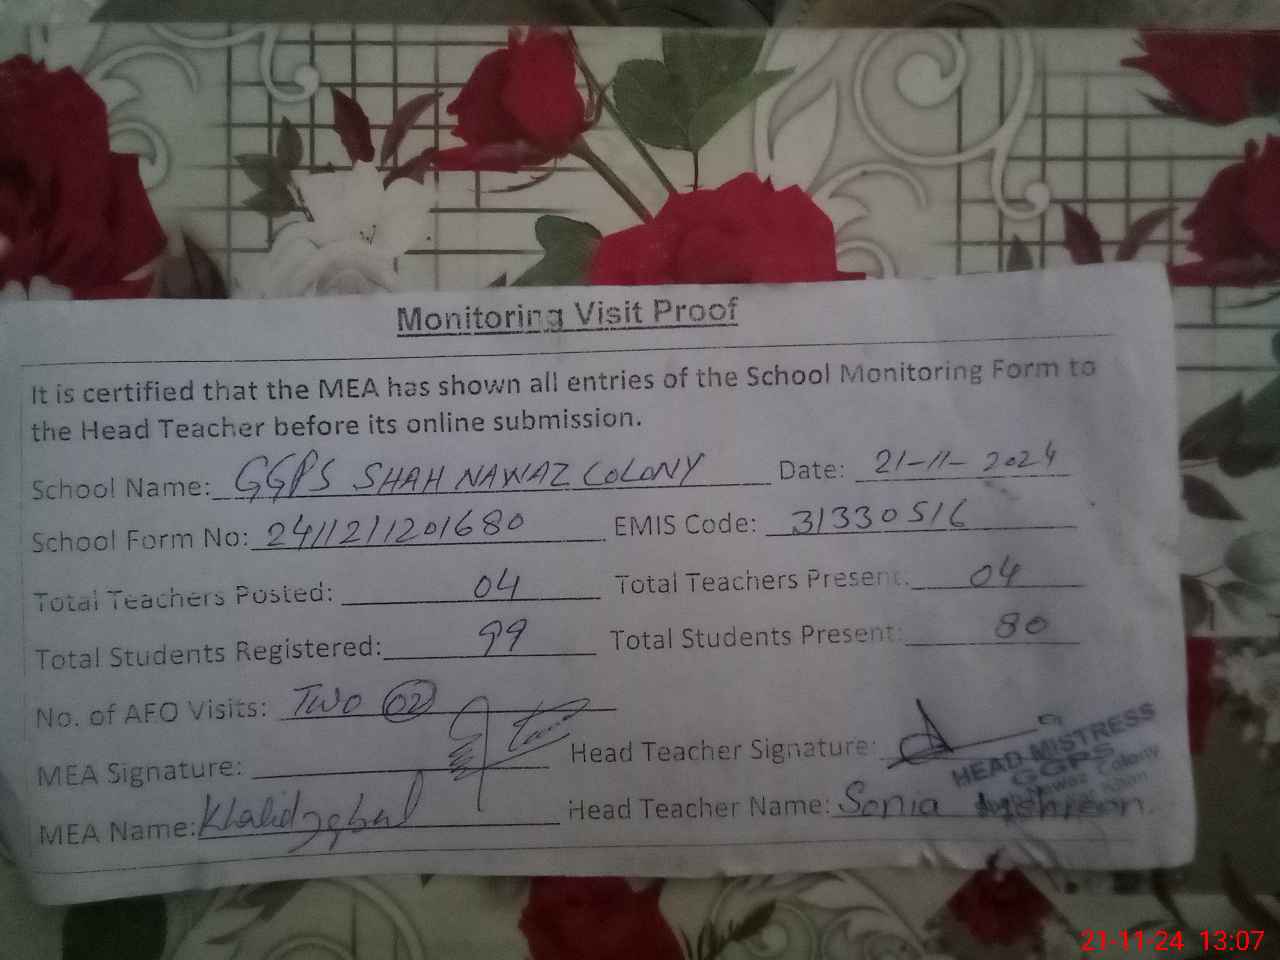 Monitoring Visit Proof
It is certified that the MEA has shown all entries of the School Monitoring Form to
the Head Teacher before its online submission.
School Name: GGPS SHAH NAWAZ COLONY Date: 21-11-2024
School Form No: 2411211201680 EMIS Code: 31330516
Total Teachers Posted: 04 Total Teachers Present: 04
Total Students Registered: 99 Total Students Present: 80
No. of AFO Visits: TWO 02
MEA Signature: Head Teacher Signature:
HEAD MISTRESS
GGPS
Nawaz Colony
Khan
MEA Name: Khalid Iqbal Head Teacher Name: Sonia
21-11-24 13:07